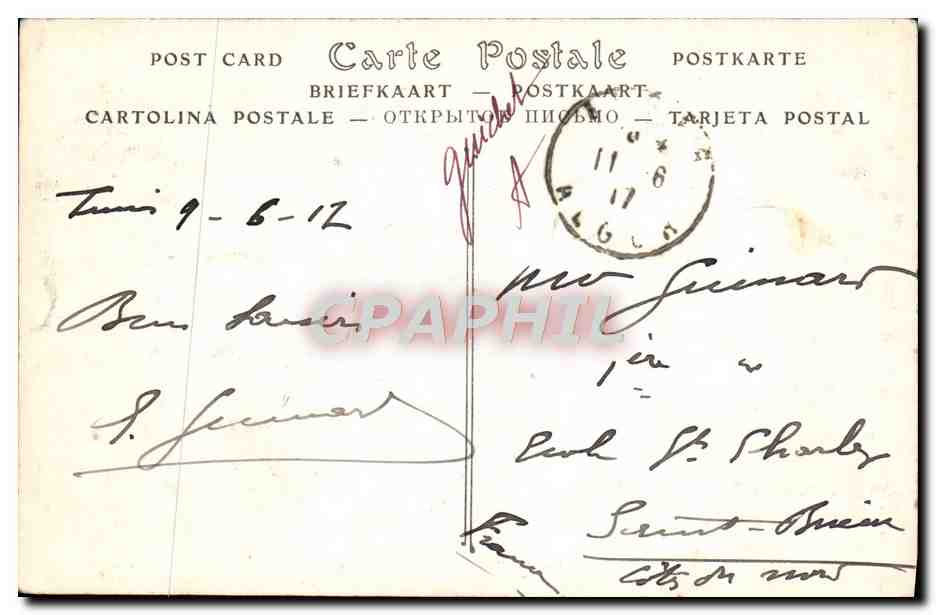 POST CARD Carte Postale POSTKARTE
BRIEFKAART — POSTKAART
CARTOLINA POSTALE — ОТКРЫТОЕ ПИСЬМО — TARJETA POSTAL
guichet
A
11 6
17
ALGER
Tunis 9-6-12
Bons baisers
Guimard
Guimard
1ère
Ecole St Charles
Saint-Brieuc
Côtes du nord
France
CPAPHIL